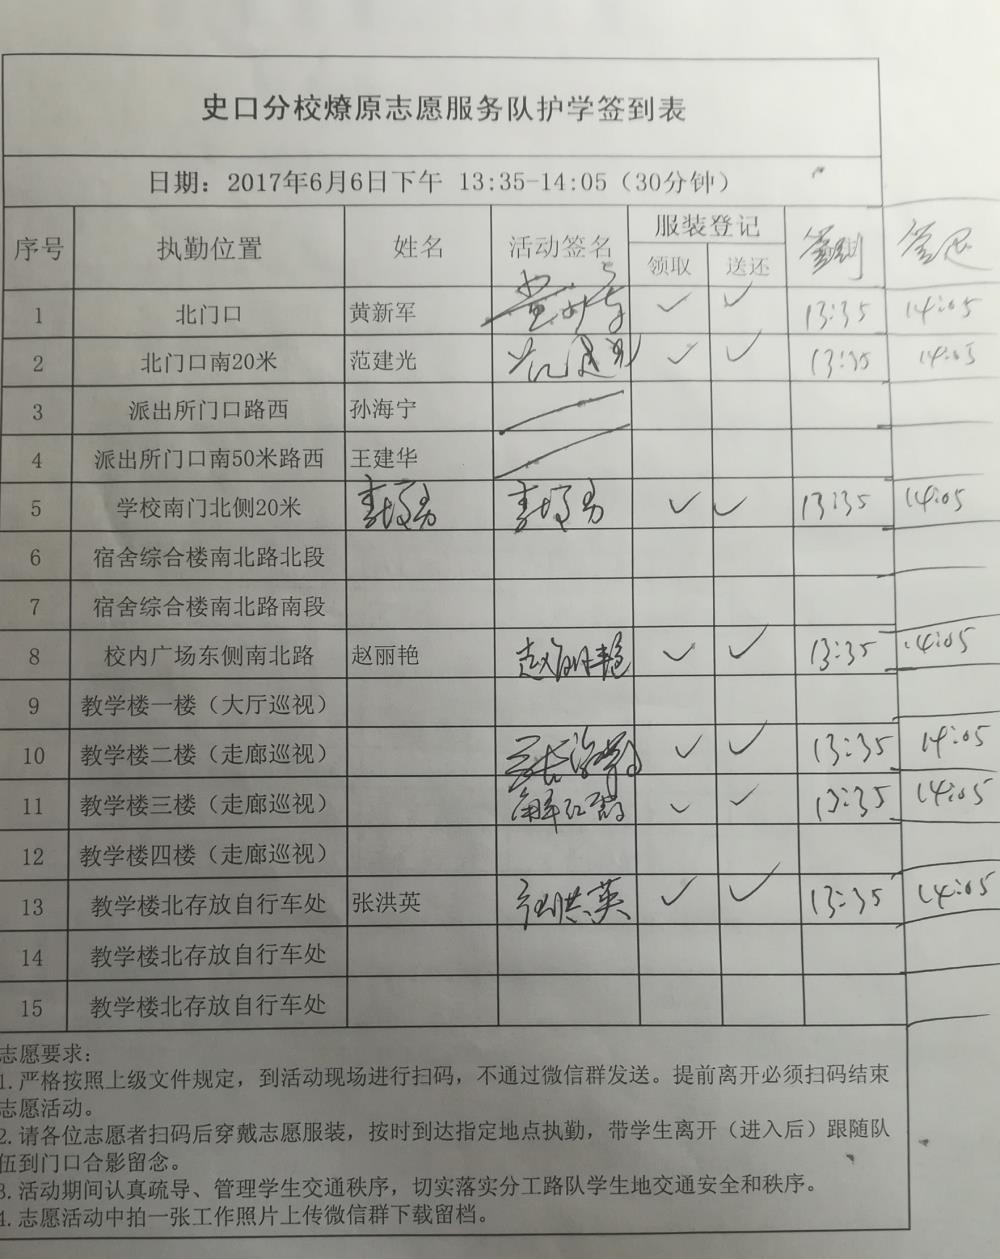 史口分校燎原志愿服务队护学签到表
日期：2017年6月6日下午 13:35-14:05（30分钟）
序号 执勤位置 姓名 活动签名 服装登记 签到 签退
领取 送还
1 北门口 黄新军 黄新军 ✓ ✓ 13:35 14:05
2 北门口南20米 范建光 范建光 ✓ ✓ 13:35 14:05
3 派出所门口路西 孙海宁
4 派出所门口南50米路西 王建华
5 学校南门北侧20米 ✓ ✓ 13:35 14:05
6 宿舍综合楼南北路北段
7 宿舍综合楼南北路南段
8 校内广场东侧南北路 赵丽艳 赵丽艳 ✓ ✓ 13:35 14:05
9 教学楼一楼（大厅巡视）
10 教学楼二楼（走廊巡视） ✓ ✓ 13:35 14:05
11 教学楼三楼（走廊巡视） 解红霞 ✓ ✓ 13:35 14:05
12 教学楼四楼（走廊巡视）
13 教学楼北存放自行车处 张洪英 张洪英 ✓ ✓ 13:35 14:05
14 教学楼北存放自行车处
15 教学楼北存放自行车处
志愿要求：
1.严格按照上级文件规定，到活动现场进行扫码，不通过微信群发送。提前离开必须扫码结束
志愿活动。
2.请各位志愿者扫码后穿戴志愿服装，按时到达指定地点执勤，带学生离开（进入后）跟随队
伍到门口合影留念。
3.活动期间认真疏导、管理学生交通秩序，切实落实分工路队学生地交通安全和秩序。
4.志愿活动中拍一张工作照片上传微信群下载留档。